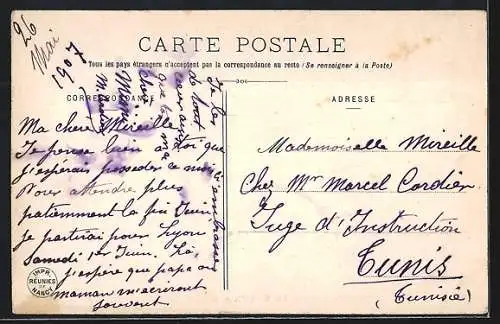 26
Mai
1907
CARTE POSTALE
Tous les pays étrangers n'acceptent pas la correspondance au recto (Se renseigner à la Poste)
CORRESPONDANCE
ADRESSE
Ma chère Mireille
Je pense bien à toi que
j'espérais posséder ce mois-ci
Pour attendre plus
patiemment la fin Juin,
je partirai pour Lyon
Samedi 1er Juin. Là,
j'espère que papa ou
maman m'écriront
souvent
Je les
embrasse
Mademoiselle Mireille
Chez Mr Marcel Cordier
Juge d'Instruction
Tunis
(Tunisie)
IMPR.
RÉUNIES
DE
NANCY